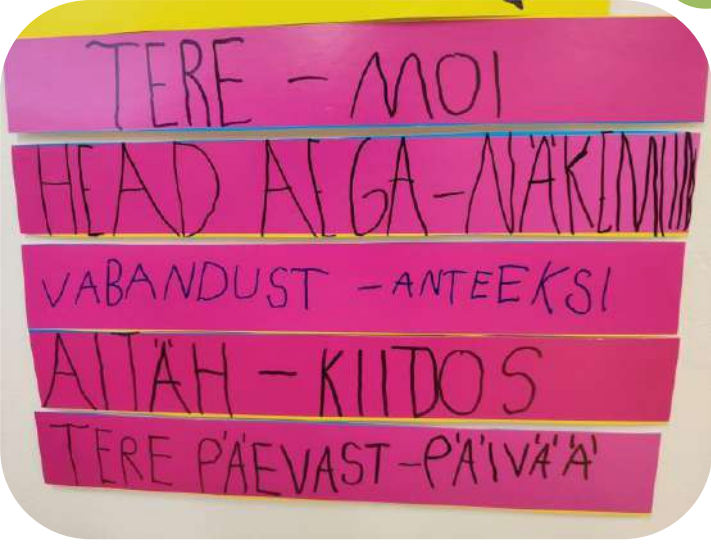 TERE - MOI
HEAD AEGA - NÄKEMIIN
VABANDUST - ANTEEKSI
AITÄH - KIITOS
TERE PÄEVAST - PÄIVÄÄ